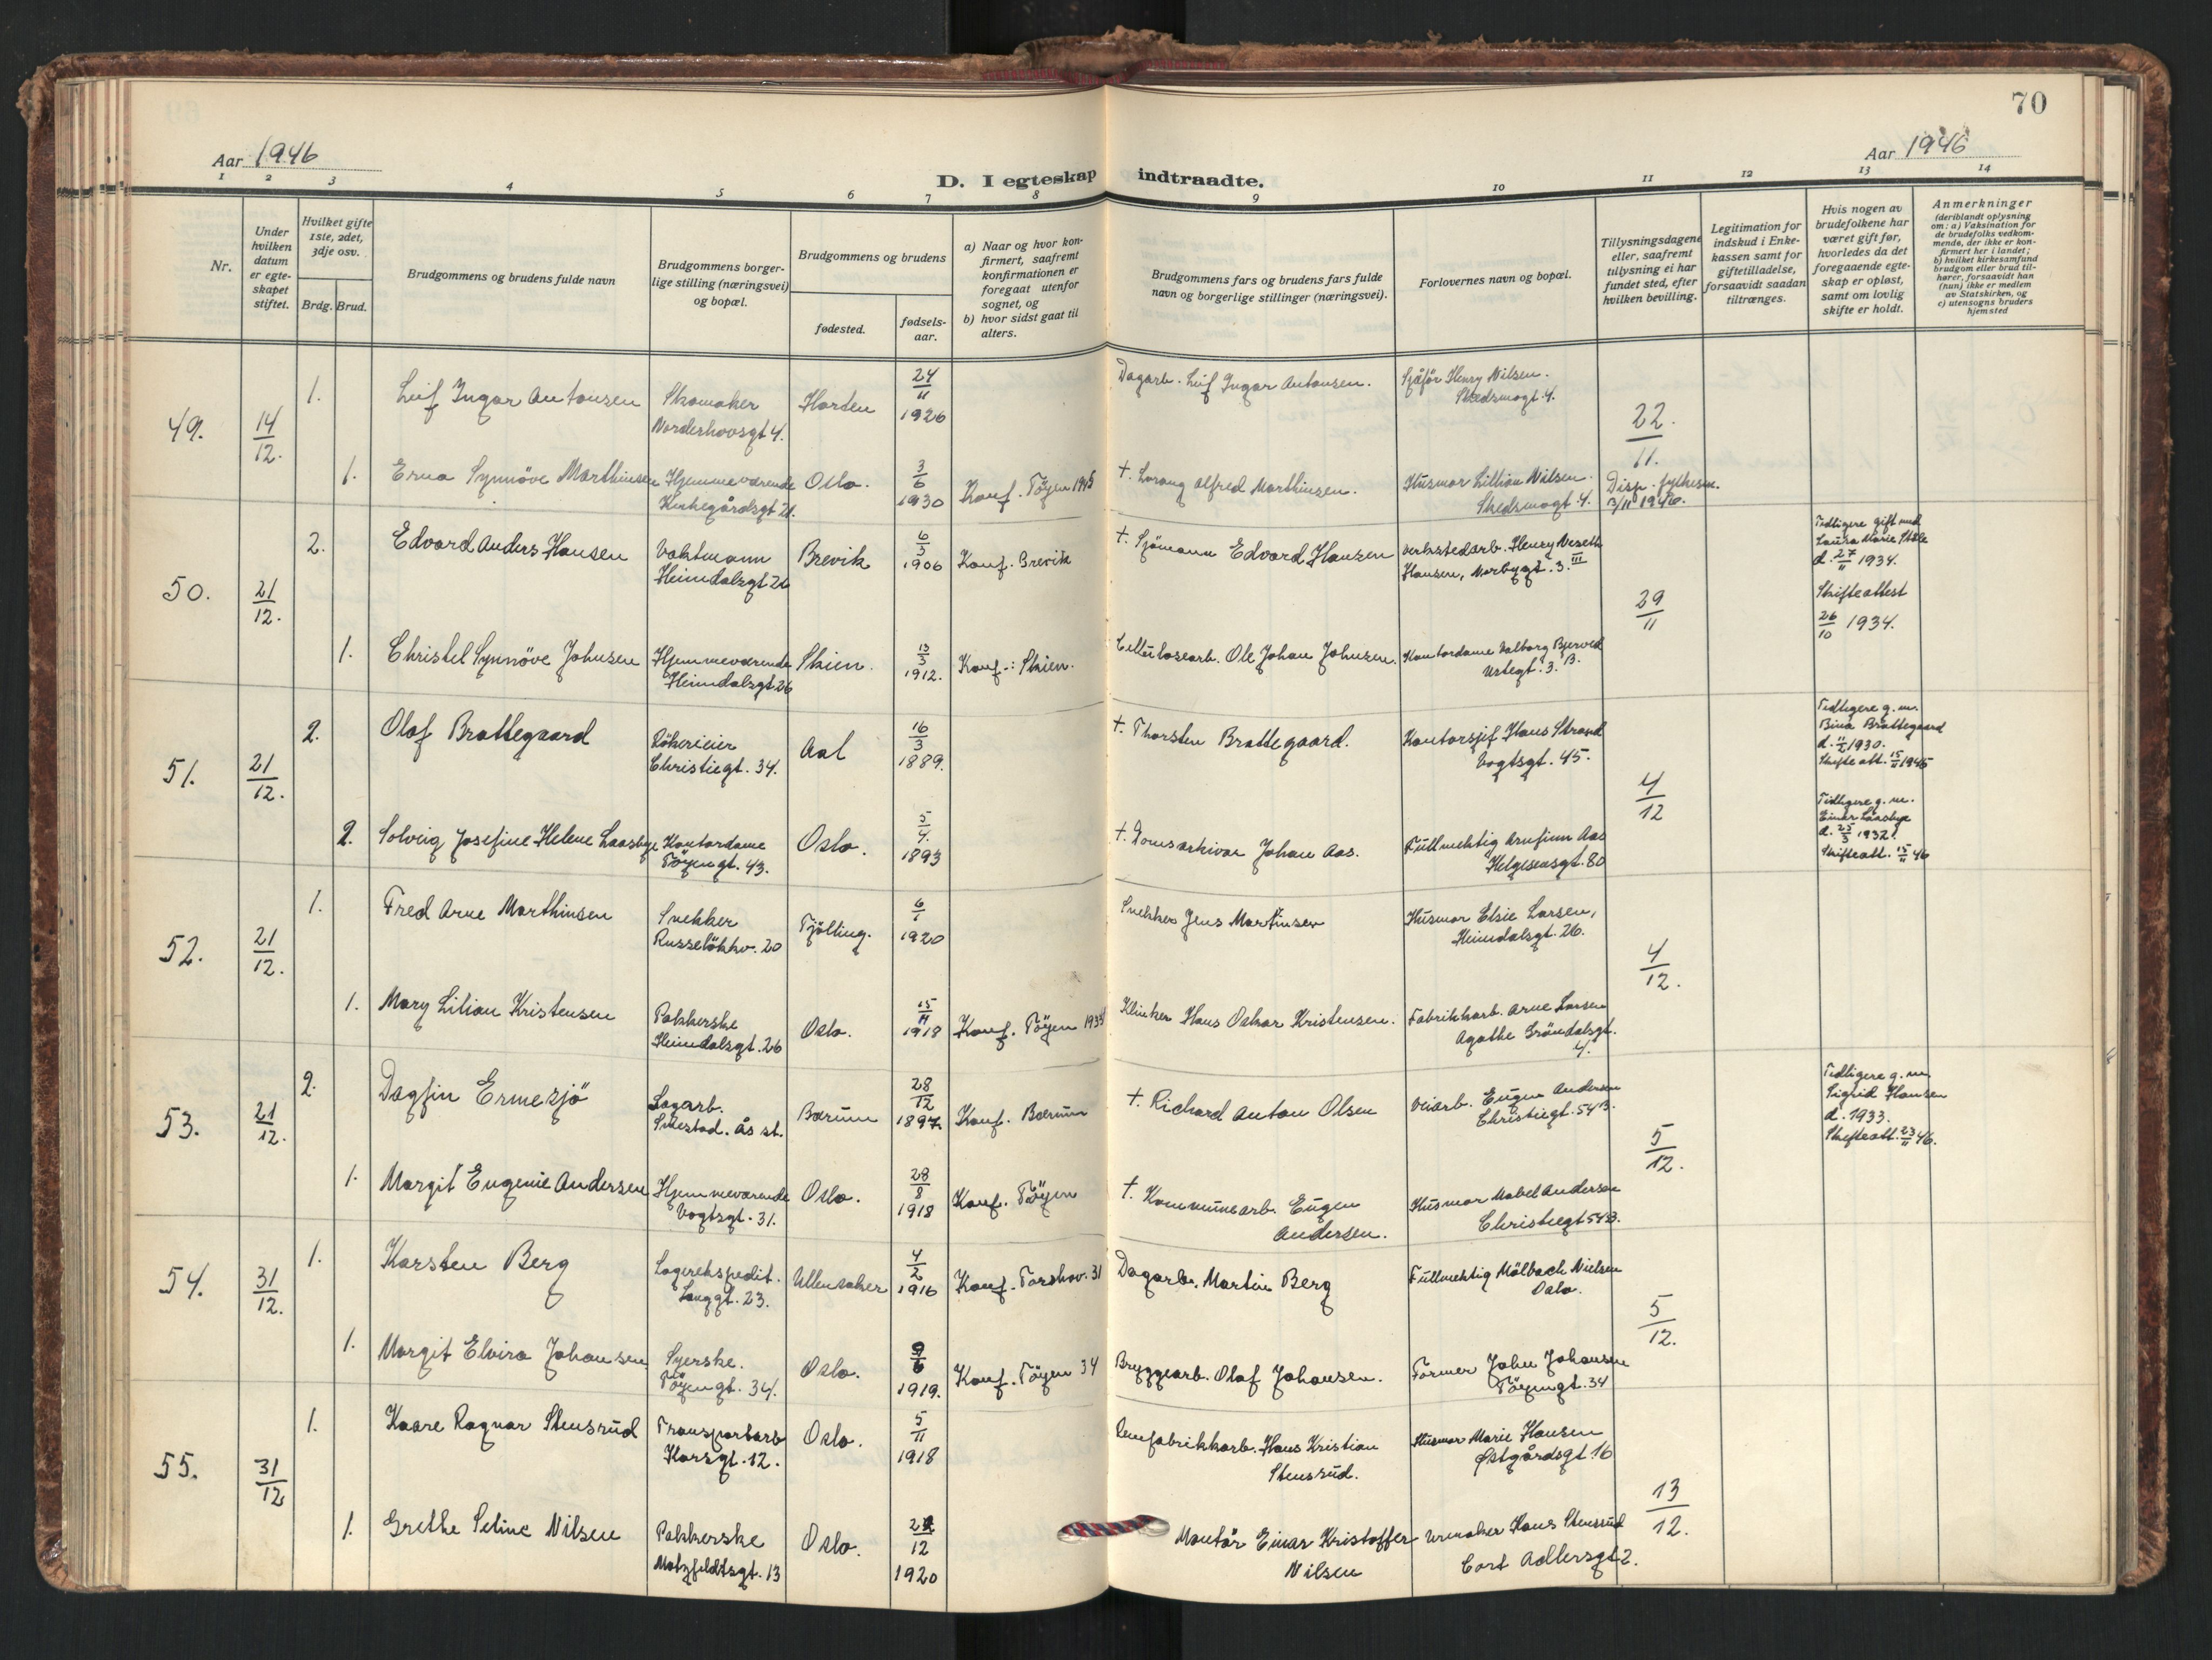 70
Aar 1946
Aar 1946
D. I egteskap indtraadte.
1 2 3 4 5 6 7 8 9 10 11 12 13 14
Nr.
Under hvilken datum er egteskapet stiftet.
Hvilket gifte 1ste, 2det, 3dje osv.
Brdg. Brud.
Brudgommens og brudens fulde navn
Brudgommens borgerlige stilling (næringsvei) og bopæl.
Brudgommens og brudens
fødested.
fødselsaar.
a) Naar og hvor konfirmert, saafremt konfirmationen er foregaat utenfor sognet, og
b) hvor sidst gaat til alters.
Brudgommens fars og brudens fars fulde navn og borgerlige stillinger (næringsvei).
Forlovernes navn og bopæl.
Tillysningsdagene eller, saafremt tillysning ei har fundet sted, efter hvilken bevilling.
Legitimation for indskud i Enkekassen samt for giftetilladelse, forsaavidt saadan tiltrænges.
Hvis nogen av brudefolkene har været gift før, hvorledes da det foregaaende egteskap er opløst, samt om lovlig skifte er holdt.
Anmerkninger
(deriblandt oplysning om: a) Vaksination for de brudefolks vedkommende, der ikke er konfirmert her i landet; b) hvilket kirkesamfund brudgom eller brud tilhører, forsaavidt han (hun) ikke er medlem av Statskirken, og c) utensogns bruders hjemsted
49. 14/12. 1. Leif Ingar Antonsen Skomaker Nordershovsgt 4. Horten 24/11 1926 Dagarb. Leif Ingar Antonsen. Sjåför Henry Nilsen. Skedsmogt. 4. 22/11.
1. Erna Synnöve Marthinsen Hjemmeværende Kirkegårdsgt 21. Oslo. 3/6 1930 Konf. Töyen 1945 †. Lorang Alfred Marthinsen. Husmor Lillian Nilsen. Skedsmogt. 4. Disp. fylkesm. 13/11 1946.
50. 21/12. 2. Edvard Anders Hansen Vaktmann Heimdalsgt 26 Brevik 6/3 1906 Konf. Brevik †. Sjömann Edvard Hansen Verkstedarb. Henry Neseth Hansen, Norbygt. 3. III 29/11 Tidligere gift med Laura Marie Ståle d. 27/11 1934. Skifteattest 26/10 1934.
1. Christel Synnöve Johnsen Hjemmeværende Heimdalsgt 26 Skien. 13/3 1912. Konf.: Skien. Cellulosearb. Ole Johan Johnsen. Kontordame Valborg Bjerved Urtegt. 3. B.
51. 21/12. 2. Olaf Brattegaard Rökerieier Christiegt. 34. Aal 16/3 1889. †. Thorsten Brattegaard. Kontorsjef Hans Strand Vogtsgt. 45. 4/12 Tidligere g. m. Bina Brattegaard d. 11/2 1930. Skifteatt. 15/11 1945
2. Solveig Josefine Helene Laasbye Kontordame Töyengt. 43. Oslo. 5/4. 1893 †. Domsarkivar Johan Aas. Fullmektig Arnfinn Aas Helgesensgt. 80 Tidligere g. m. Einar Laasbye d. 25/3 1932. Skifteatt. 15/11 46
52. 21/12. 1. Fred Arne Marthinsen Snekker Russelökkv. 20 Tjölling. 6/1 1920 Snekker Jens Martinsen Husmor Elsie Larsen, Heimdalsgt. 26. 4/12.
1. Mary Lilian Kristensen Pakkerske Heimdalsgt. 26 Oslo. 15/11 1918 Konf. Töyen 1934 Klinker Hans Oskar Kristensen. Fabrikkarb. Arne Larsen Agathe Gröndalsgt. 4.
53. 21/12. 2. Dagfin Ermesjö Lagerb. ås st. Bærum 28/12 1897. Konf. Bærum †. Richard Anton Olsen Veiarb. Eugen Andersen Christiegt. 54 B. 5/12. Tidligere g. m. Sigrid Hansen d. 1933. Skifteatt. 23/11 46.
1. Margit Eugenie Andersen Hjemmeværende Vogtsgt. 31. Oslo. 28/8 1918 Konf. Töyen †. Kommunearb. Eugen Andersen. Husmor Mabel Andersen Christiegt 54 B.
54. 31/12. 1. Karsten Berg Lagerekspedit. Langgt. 23. Ullensaker 4/2 1916 Konf. Torshov. 31 Dagarb. Martin Berg Fullmektig Mölbach Nielsen Oslo. 5/12.
1. Margit Elvira Johansen Syerske. Töyengt. 34. Oslo. 9/6 1919. Konf. Töyen 34 Bryggearb. Olaf Johansen. Former John Johansen Töyengt. 34
55. 31/12 1. Kaare Ragnar Stensrud Transportarb Korsgt. 12. Oslo. 5/11 1918 Hans Kristian Stensrud. Husmor Marie Hansen Østgårdsgt. 16 13/12.
1. Grethe Seline Nilsen Pakkerske Motzfeldtsgt. 13 Oslo. 12 1920 Montör Einar Kristoffer Nilsen Urmaker Hans Stensrud Cort Adlersgt 2.